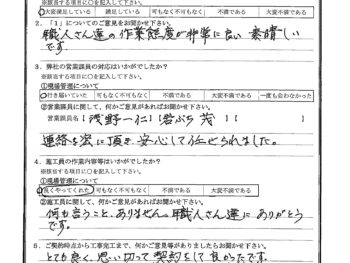 ※該当する項目に〇を記入して下さい。
大変満足している 満足している 可もなく不可もなく 不満である 大変不満である
2．「1」についてのご意見をお聞かせ下さい。
職人さん達の作業態度が非常に良い 素晴しい
です。
3．弊社の営業課員の対応はいかがでしたか？
※該当する項目に〇を記入して下さい。
①現場管理について
行き届いていた 可もなく不可もなく 不満である 大変不満である 一度も会わなかった
②営業課員に関して、何かご意見があればお聞かせ下さい。
営業課員名【浅野一仁】【岩ぶち 茂】【 】
連絡を密に頂き 安心して任せられました。
4．施工員の作業内容等はいかがでしたか？
※該当する項目に〇を記入して下さい。
①現場管理について
良くやってくれた 可もなく不可もなく 不満である 大変不満である
②施工員に関して、何かご意見があればお聞かせ下さい。
何も言うこと、ありません。職人さん達に ありがとう
です。
5．ご契約時点から工事完工まで、何かご意見等がありましたらお聞かせ下さい。
とても良く、思い切って契約をして良かったです。